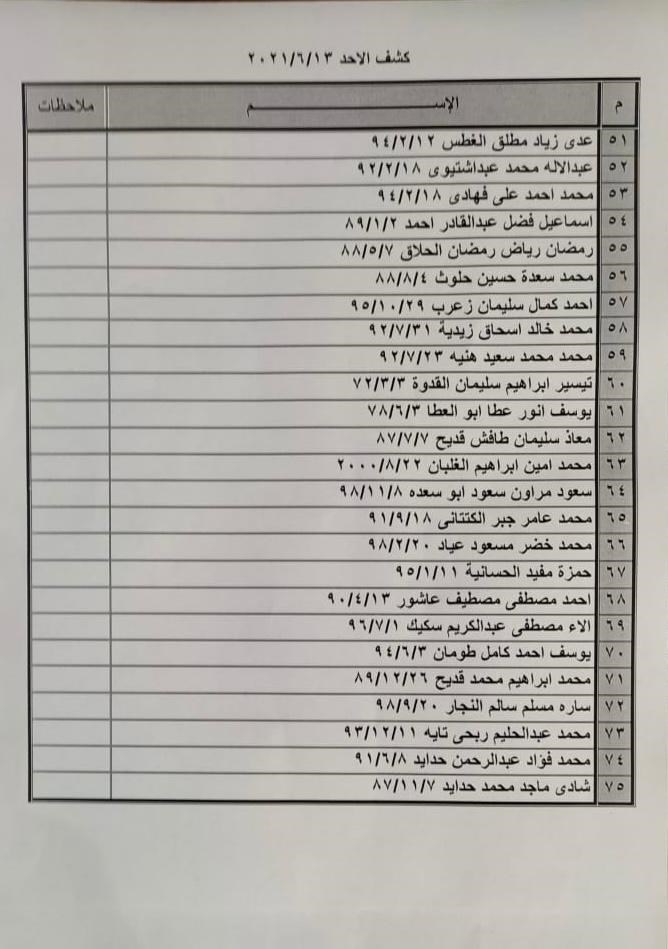 كشف الاحد ٢٠٢١/٦/١٣
م الإســـم ملاحظات
٥١ عدى زياد مطلق الغطس ٩٤/٢/١٢
٥٢ عبدالاله محمد عبداشتيوى ٩٢/٢/١٨
٥٣ محمد احمد على فهادى ٩٤/٢/١٨
٥٤ اسماعيل فضل عبدالقادر احمد ٨٩/١/٢
٥٥ رمضان رياض رمضان الحلاق ٨٨/٥/٧
٥٦ محمد سعدة حسين حلوث ٨٨/٨/٤
٥٧ احمد كمال سليمان زعرب ٩٥/١٠/٢٩
٥٨ محمد خالد اسحاق زيدية ٩٢/٧/٣١
٥٩ محمد محمد سعيد هنيه ٩٢/٧/٢٣
٦٠ تيسير ابراهيم سليمان القدوة ٧٢/٣/٣
٦١ يوسف انور عطا ابو العطا ٧٨/٦/٣
٦٢ معاذ سليمان طافش قديح ٨٧/٧/٧
٦٣ محمد امين ابراهيم الغلبان ٢٠٠٠/٨/٢٢
٦٤ سعود مراون سعود ابو سعده ٩٨/١١/٨
٦٥ محمد عامر جبر الكتتانى ٩١/٩/١٨
٦٦ محمد خضر مسعود عياد ٩٨/٢/٢٠
٦٧ حمزة مفيد الحسانية ٩٥/١/١١
٦٨ احمد مصطفى مصطيف عاشور ٩٠/٤/١٣
٦٩ الاء مصطفى عبدالكريم سكيك ٩٦/٧/١
٧٠ يوسف احمد كامل طومان ٩٤/٦/٣
٧١ محمد ابراهيم محمد قديح ٨٩/١٢/٢٦
٧٢ ساره مسلم سالم النجار ٩٨/٩/٢٠
٧٣ محمد عبدالحليم ربحى تايه ٩٣/١٢/١١
٧٤ محمد فؤاد عبدالرحمن حدايد ٩١/٦/٨
٧٥ شادى ماجد محمد حدايد ٨٧/١١/٧